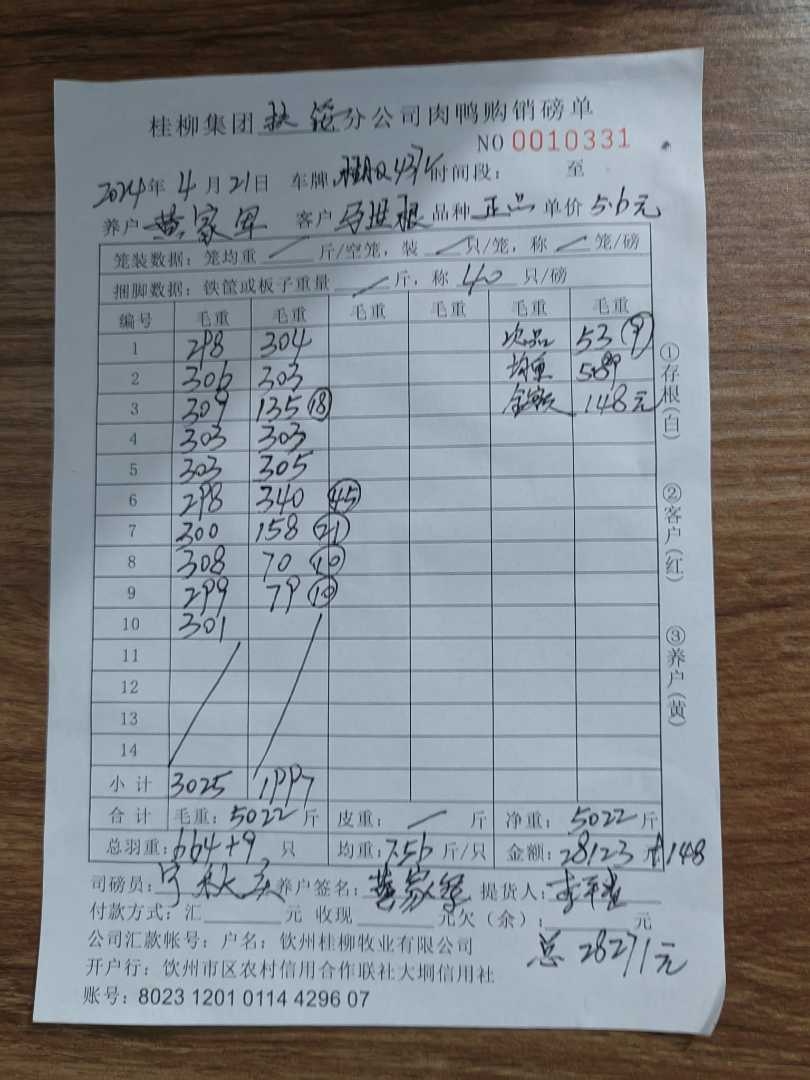 桂柳集团 分公司肉鸭购销磅单
NO 0010331
2024年4月21日 车牌: 时间段: 至
养户 黄家军 客户 品种 正品 单价 5.6元
笼装数据: 笼均重 / 斤/空笼, 装 / 只/笼, 称 / 笼/磅
捆脚数据: 铁筐或板子重量 / 斤, 称 40 只/磅
编号 毛重 毛重 毛重 毛重 毛重 毛重
1 298 304 次品 53 (9)
2 306 303 均重 5.89
3 309 135 (18) 金额 148元
4 303 303
5 303 305
6 298 340 (45)
7 300 158 (21)
8 308 70 (10)
9 299 79 (10)
10 301
11
12
13
14
小计 3025 1997
合计 毛重: 5022 斤 皮重: / 斤 净重: 5022 斤
总羽重: 664+9 只 均重: 7.56 斤/只 金额: 28123 +148
司磅员: 养户签名: 黄家军 提货人:
付款方式: 汇 元 收现 元欠(余): 元
公司汇款帐号: 户名: 钦州桂柳牧业有限公司
总 28271元
开户行: 钦州市区农村信用合作联社大垌信用社
账号: 8023 1201 0114 4296 07
①存根(白) ②客户(红) ③养户(黄)